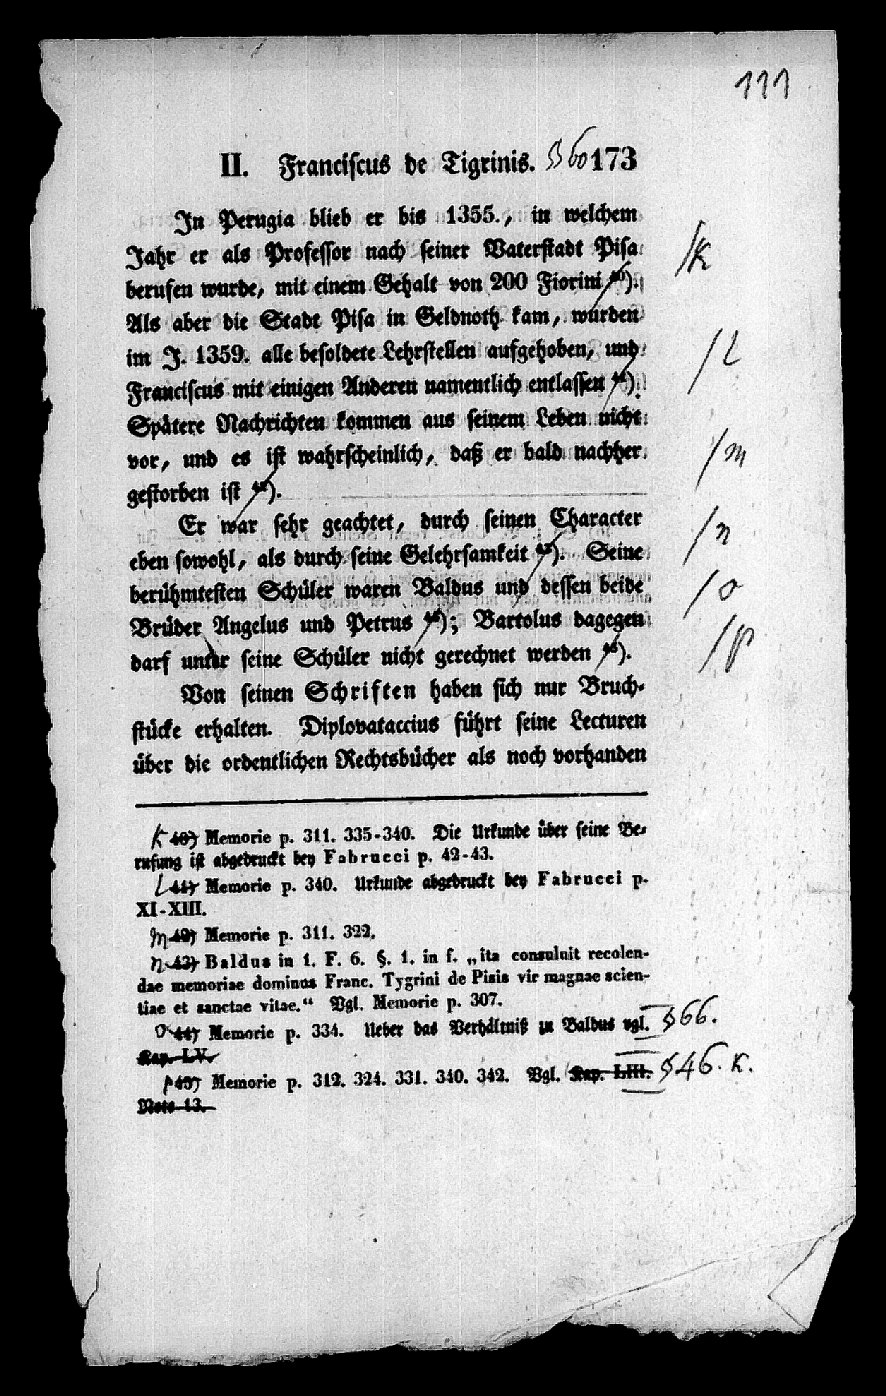 111
II. Franciscus de Tigrinis. §60 173
In Perugia blieb er bis 1355., in welchem
Jahr er als Professor nach seiner Vaterstadt Pisa
berufen wurde, mit einem Gehalt von 200 Fiorini 40). /k
Als aber die Stadt Pisa in Geldnoth kam, wurden
im J. 1359. alle besoldete Lehrstellen aufgehoben, und
Franciscus mit einigen Anderen namentlich entlassen 41). /l
Spätere Nachrichten kommen aus seinem Leben nicht
vor, und es ist wahrscheinlich, daß er bald nachher
gestorben ist 42). /m
Er war sehr geachtet, durch seinen Character
eben sowohl, als durch seine Gelehrsamkeit 43). Seine /n
berühmtesten Schüler waren Baldus und dessen beide
Brüder Angelus und Petrus 44); Bartolus dagegen /o
darf unter seine Schüler nicht gerechnet werden 45). /p
Von seinen Schriften haben sich nur Bruch-
stücke erhalten. Diplovataccius führt seine Lecturen
über die ordentlichen Rechtsbücher als noch vorhanden
k 40) Memorie p. 311. 335-340. Die Urkunde über seine Be-
rufung ist abgedruckt bey Fabrucci p. 42-43.
l 41) Memorie p. 340. Urkunde abgedruckt bey Fabrucci p.
XI-XIII.
m 42) Memorie p. 311. 322.
n 43) Baldus in l. F. 6. §. 1. in f. „ita consuluit recolen-
dae memoriae dominus Franc. Tygrini de Pisis vir magnae scien-
tiae et sanctae vitae.“ Vgl. Memorie p. 307.
o 44) Memorie p. 334. Ueber das Verhältniß zu Baldus vgl. §66.
Kap. LV.
p 45) Memorie p. 312. 324. 331. 340. 342. Vgl. Kap. LIII. §46. k.
Note 13.